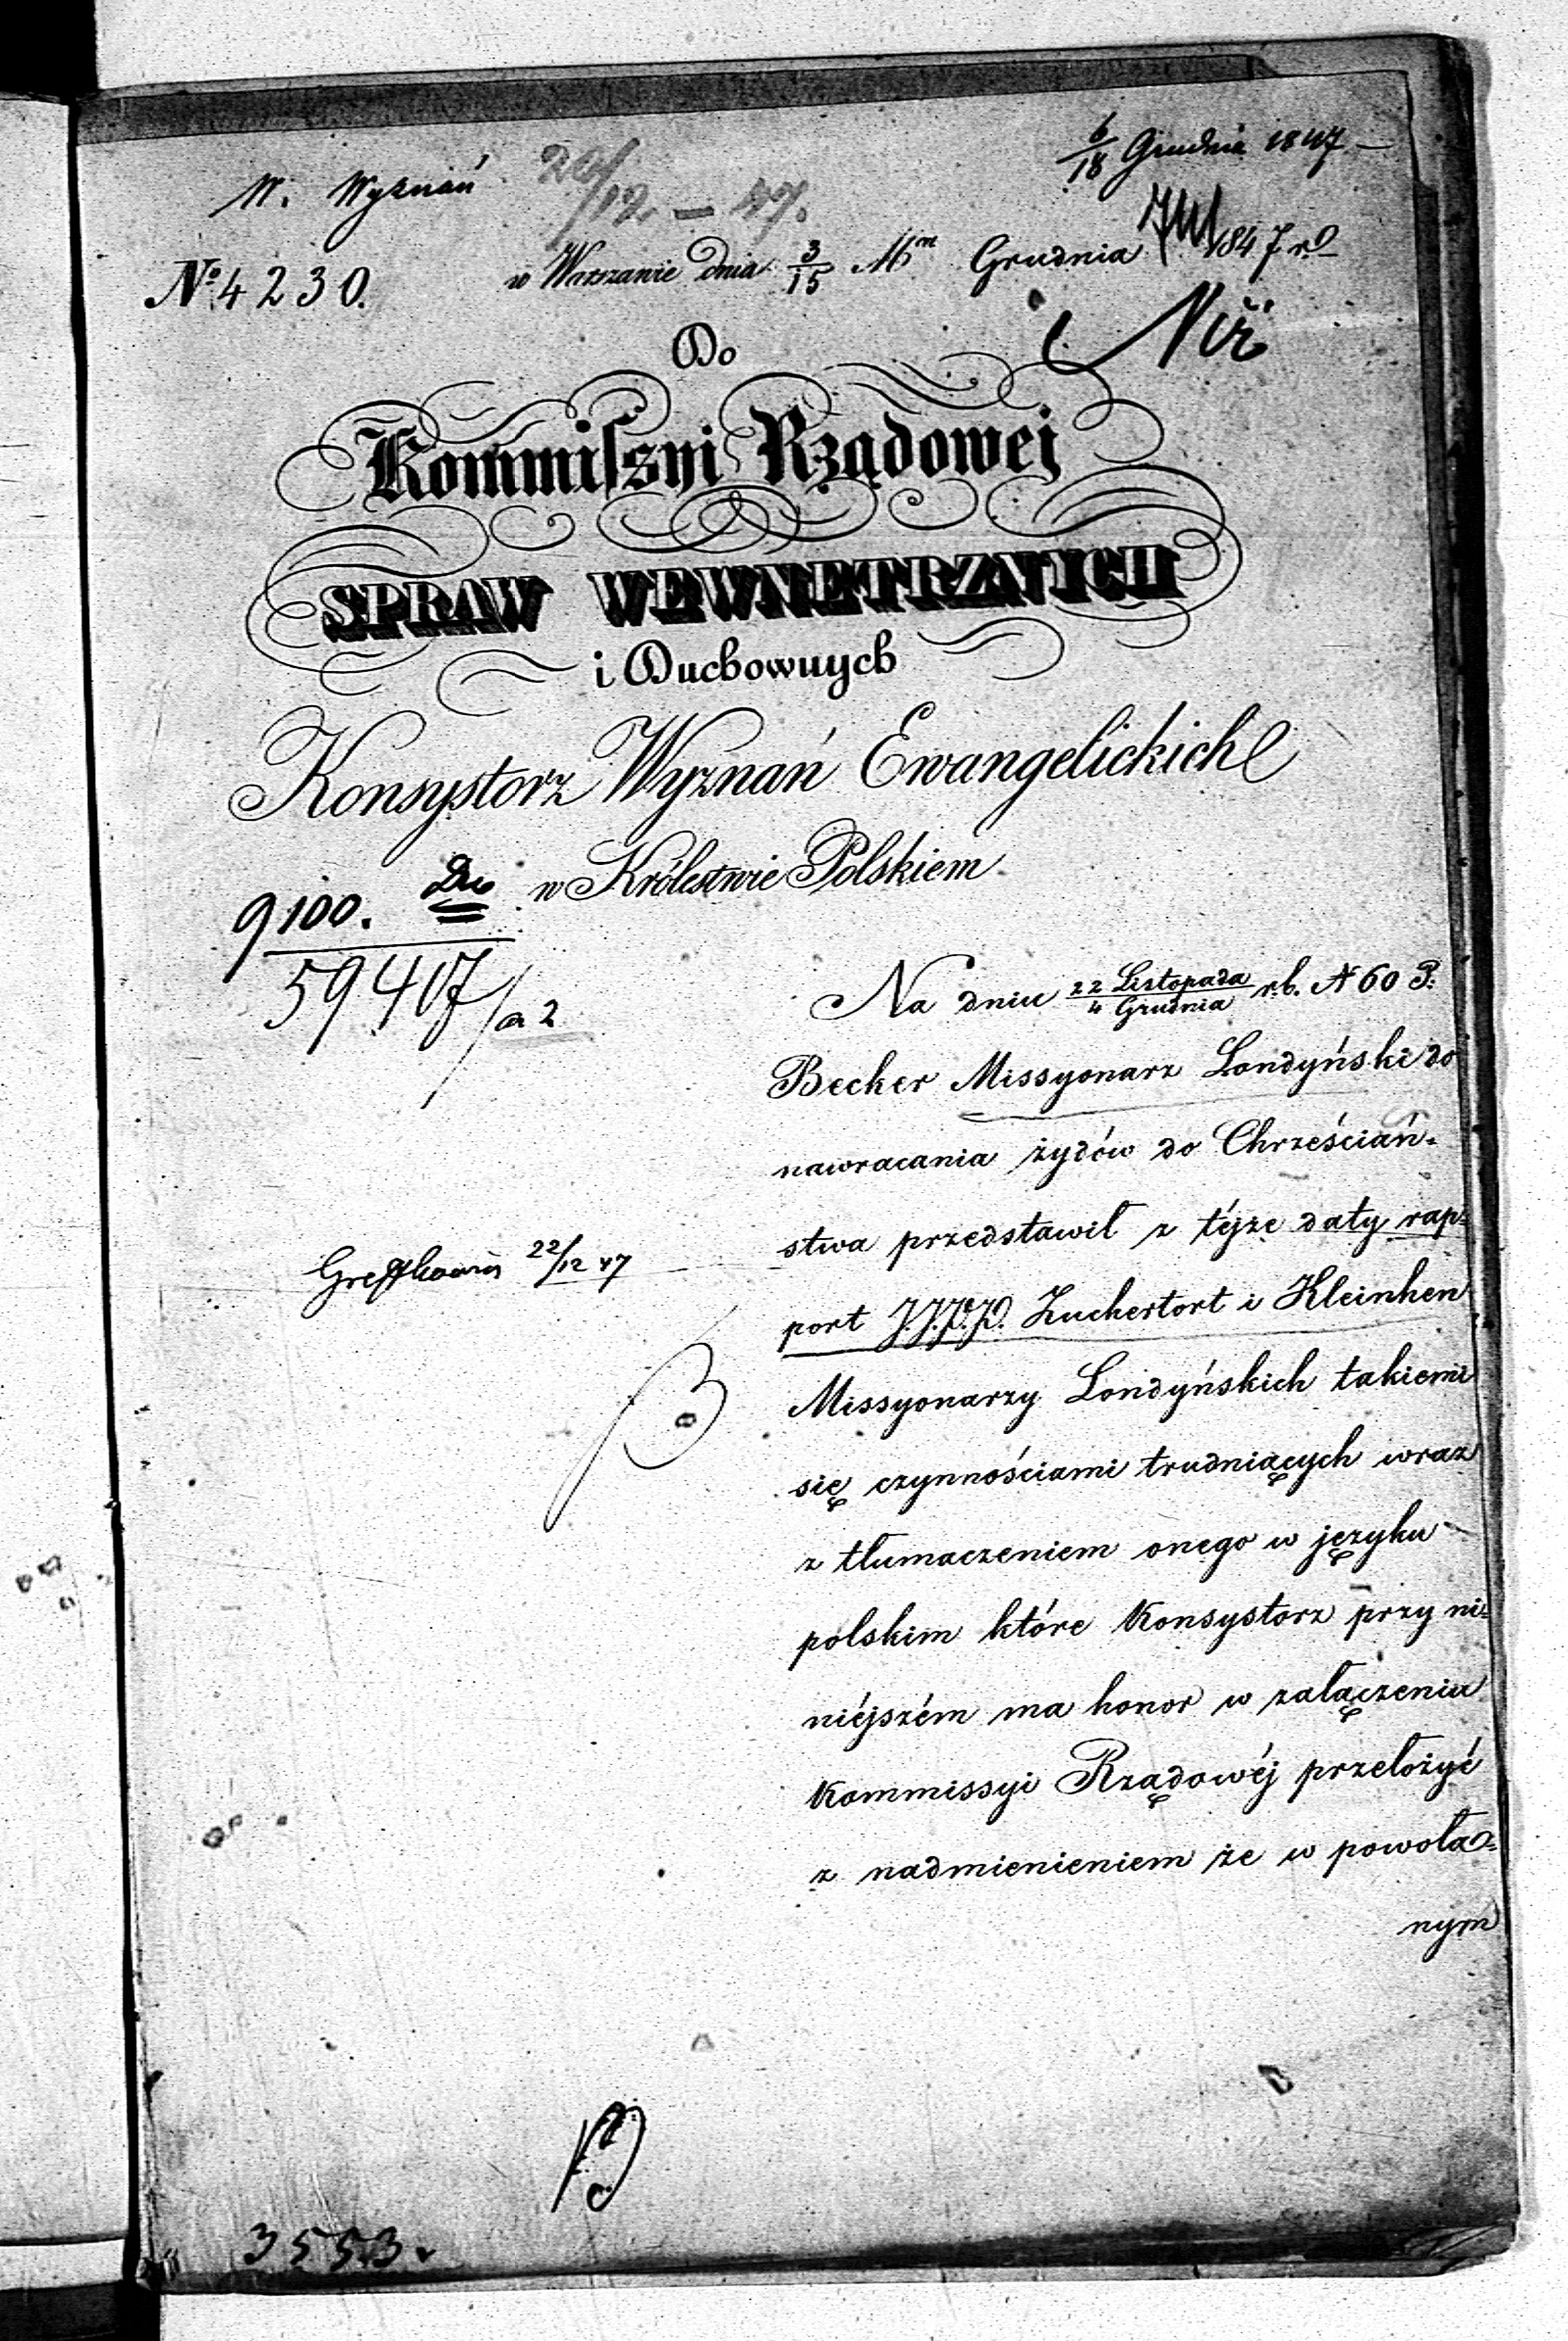 6/18 Grudnia 1847 —
W. Wyznań 20/12. — 47.
№ 4230. w Warszawie dnia 3/15 Mca Grudnia 1847 r.
Do
Kommiſzyi Rządowej
SPRAW WEWNETRZNYCH
i Duchownych
Konsystorz Wyznań Ewangelickich
w Królestwie Polskiem
9100.
59407/a 2
Na dniu 22 Listopada/4 Grudnia r.b. N 60 P.
Becker Missyonarz Londyński do
nawracania żydów do Chrześciań-
stwa przedstawił z téjże daty rap-
22/12 47
port J.J.P.P. Zuchertort i Kleinhen
Missyonarzy Londyńskich takiemi
się czynnościami trudniących wraz
z tłumaczeniem onego w języku
polskim które Konsystorz przy ni-
niéjszém ma honor w załączeniu
Kommissyi Rządowéj przełożyć
z nadmienieniem że w powoła-
nym
3553.